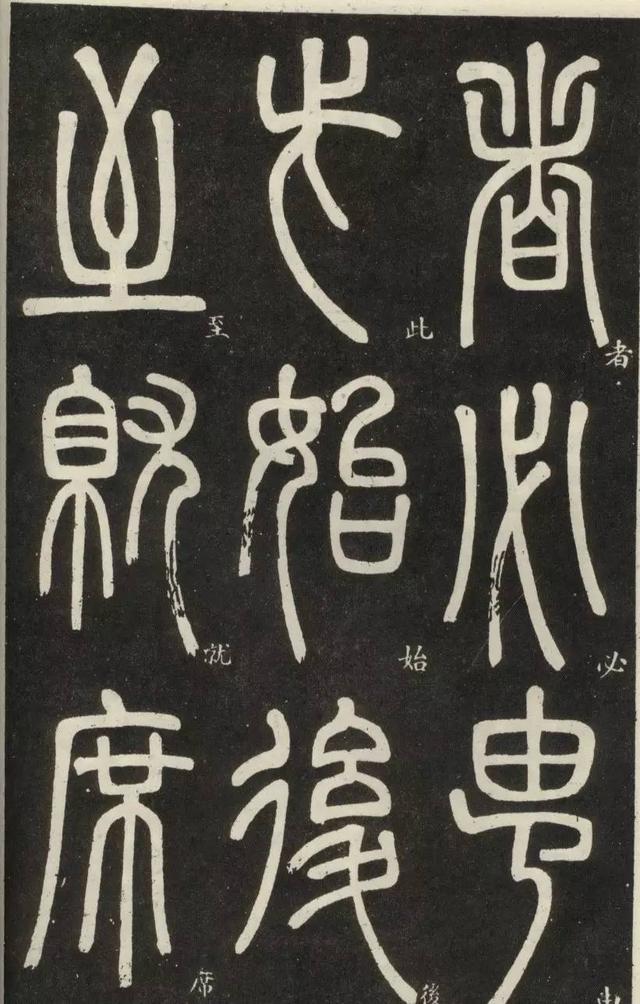 者必由
者必
此始後
此始後
至就席
至就席